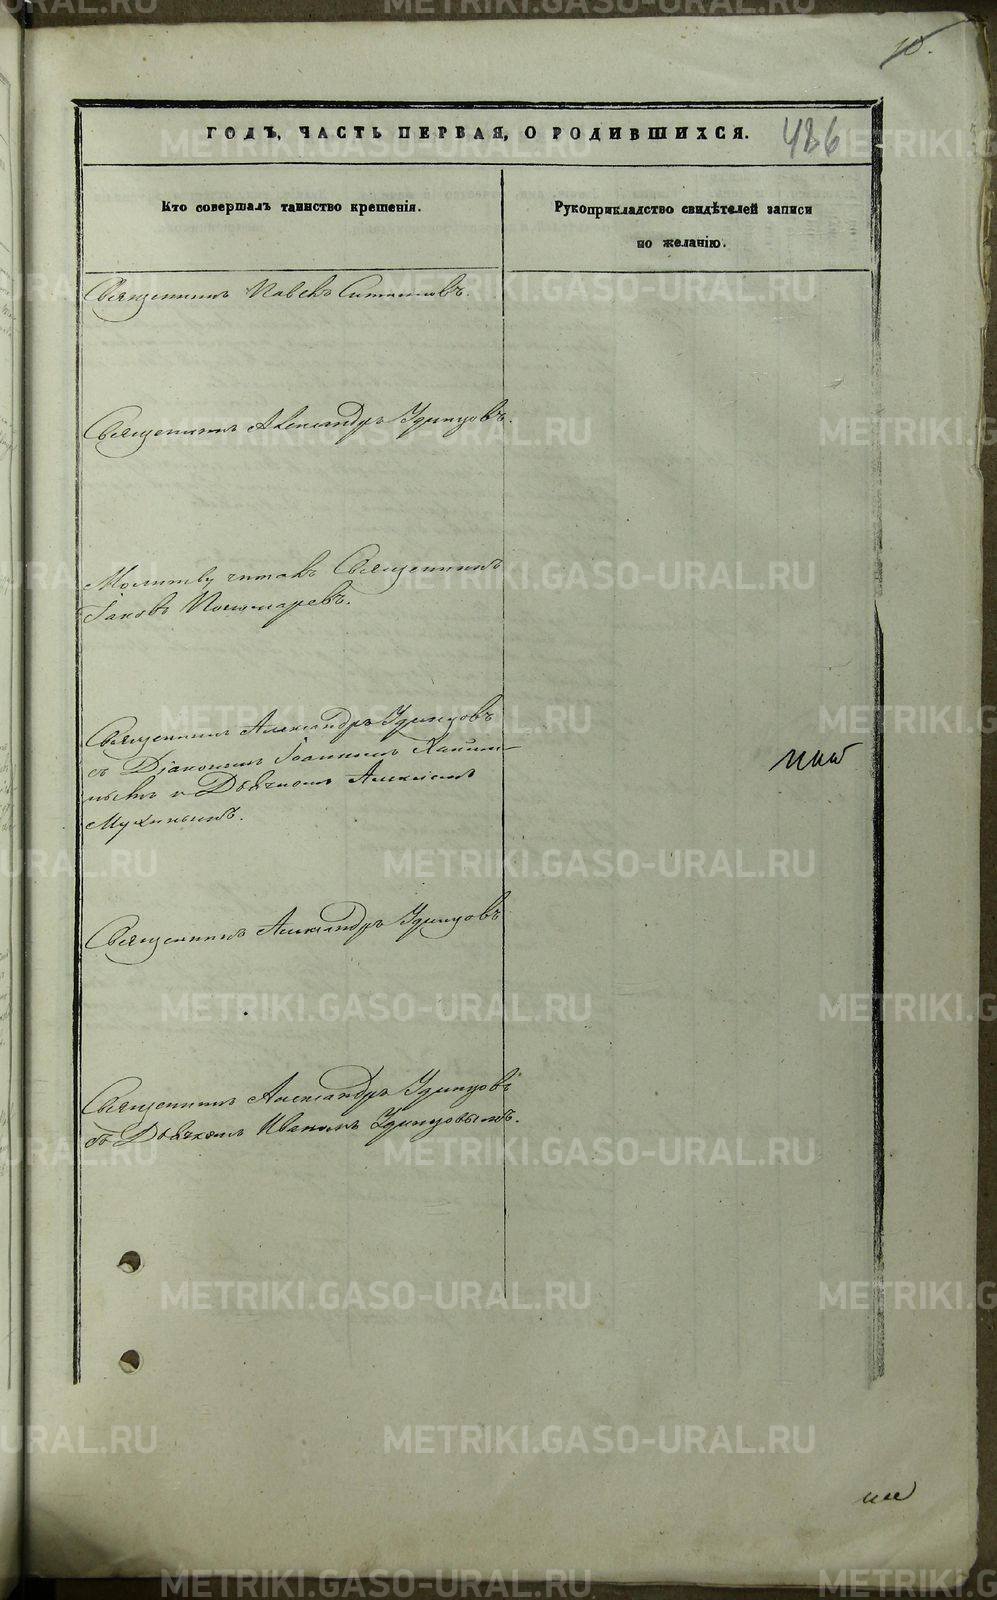 10.
ГОДЪ, ЧАСТЬ ПЕРВАЯ, О РОДИВШИХСЯ.
486
Кто совершалъ таинство крещенія.
Рукоприкладство свидѣтелей записи
по желанію.
Священникъ Павелъ
Священникъ Александръ Удинцовъ.
Молитву читалъ Священникъ
Іаковъ Пономаревъ.
Священникъ Александръ Удинцовъ
съ Діакономъ Іоанномъ
и Дьячкомъ Алексіемъ
Мухинымъ.
Священникъ Александръ Удинцовъ
Священникъ Александръ Удинцовъ
съ Дьячкомъ Иваномъ Удинцовымъ.
METRIKI.GASO-URAL.RU